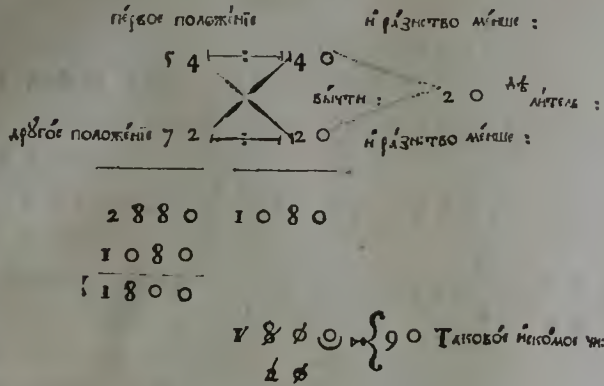 пе́рвое положе́нїе и҆ ра́знство ме́нше :
5 4 : 4 0
вы́чти : 2 0 дѣли́тель :
друго́е положе́нїе 7 2 : 2 0 и҆ ра́знство ме́нше :
2 8 8 0 1 0 8 0
1 0 8 0
1 8 0 0
1 8 0 0 { 9 0 Таково́е и҆ско́мое чи:
2 0